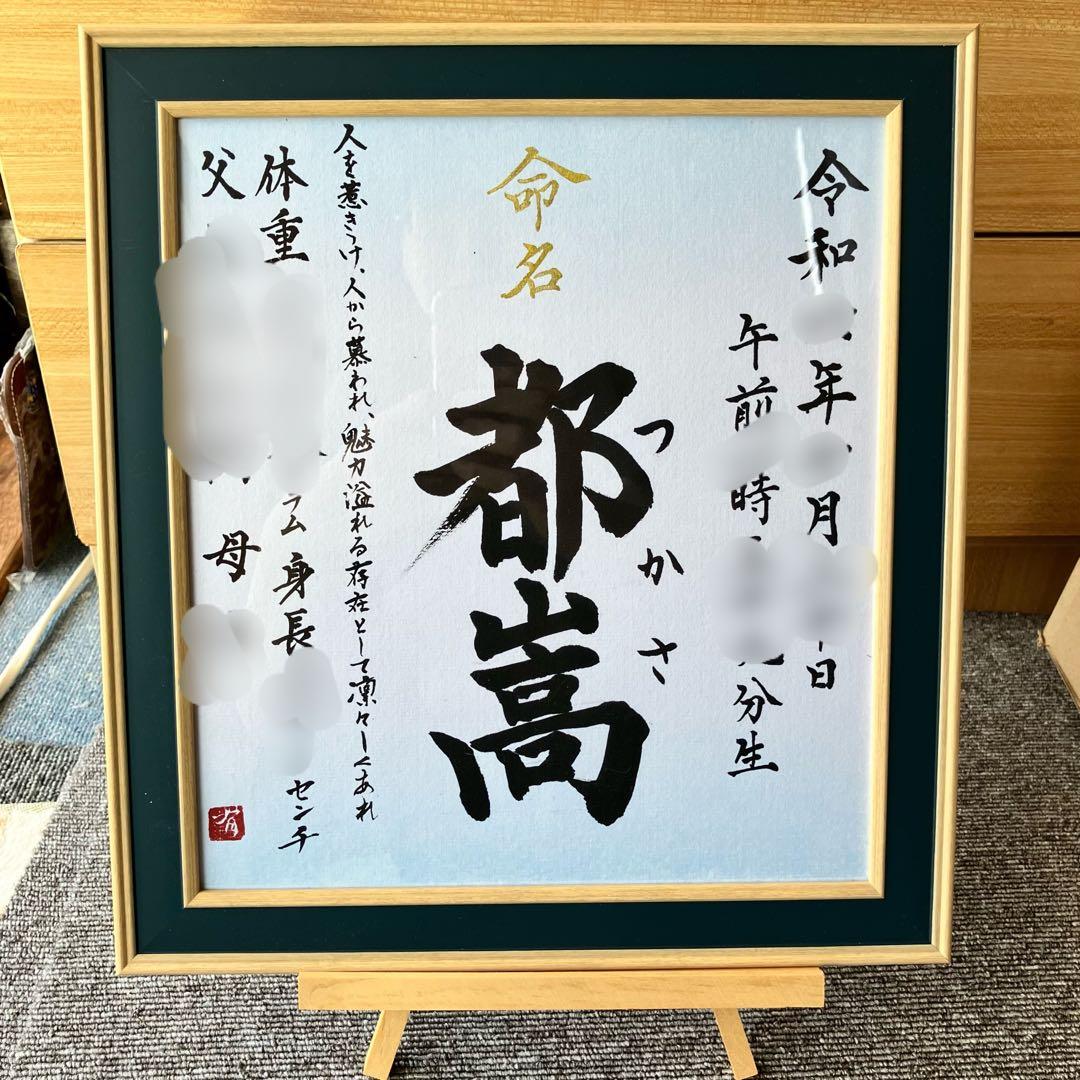 令和 年 月 日
午前 時 分生
命名
都嵩
つかさ
人を惹きつけ、人から慕われ、魅力溢れる存在として凛々しくあれ
体重 ラム身長 センチ
父 母